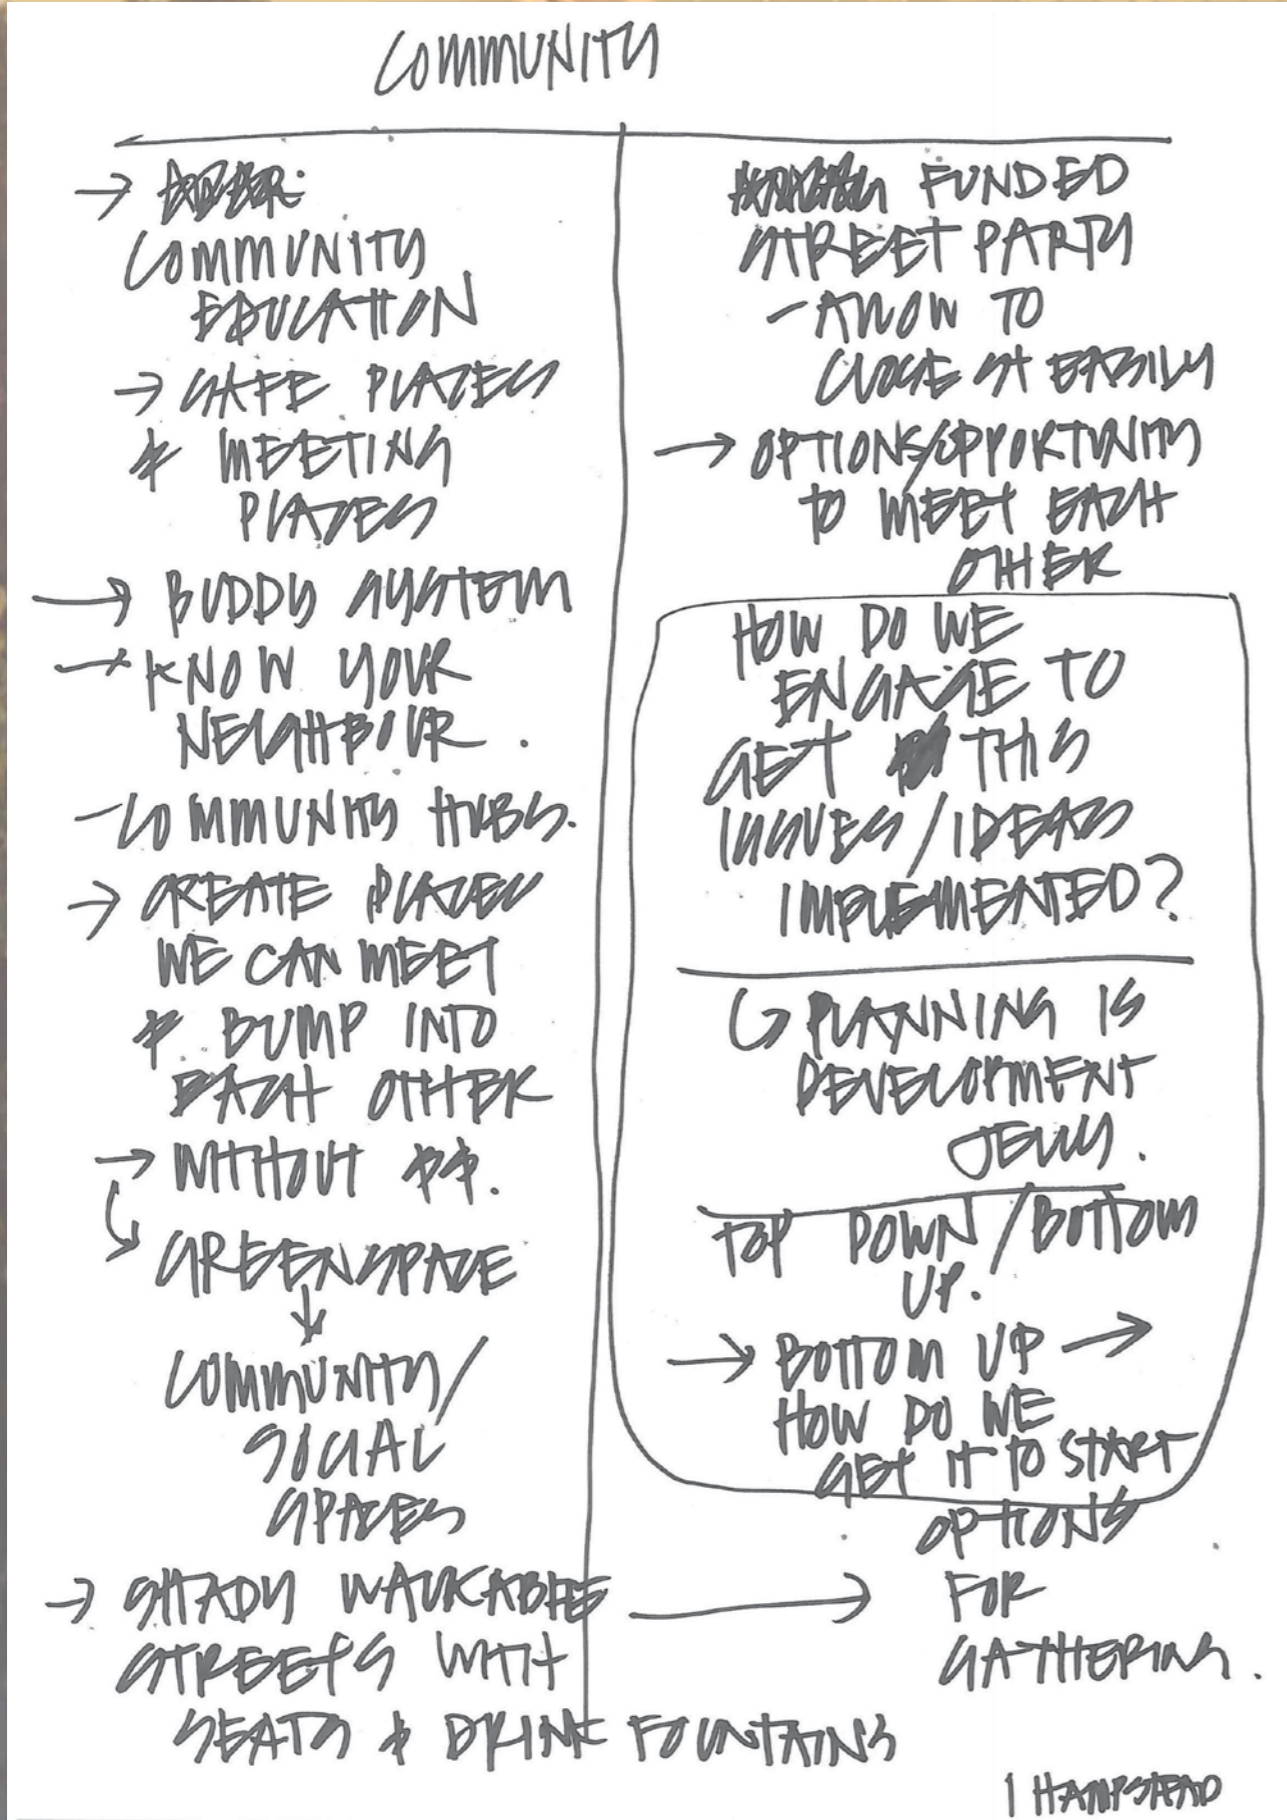 COMMUNITY
→
COMMUNITY
EDUCATION
→ SAFE PLACES
& MEETING
PLACES
→ BUDDY SYSTEM
→ KNOW YOUR
NEIGHBOUR.
- COMMUNITY HUBS.
→ CREATE PLACES
WE CAN MEET
& BUMP INTO
EACH OTHER
→ WITHOUT $$.
GREENSPACE
↓
COMMUNITY/
SOCIAL
SPACES
→ SHADY WALKABLE →
STREETS WITH
SEATS & DRINK FOUNTAINS
FUNDED
STREET PARTY
- ALLOW TO
CLOSE ST EASILY
→ OPTIONS/OPPORTUNITY
TO MEET EACH
OTHER
HOW DO WE
ENGAGE TO
GET THIS
ISSUES/IDEAS
IMPLEMENTED?
PLANNING IS
DEVELOPMENT
JELLY.
TOP DOWN/BOTTOM
UP.
→ BOTTOM UP →
HOW DO WE
GET IT TO START
OPTIONS
FOR
GATHERING.
1 HAMPSTEAD